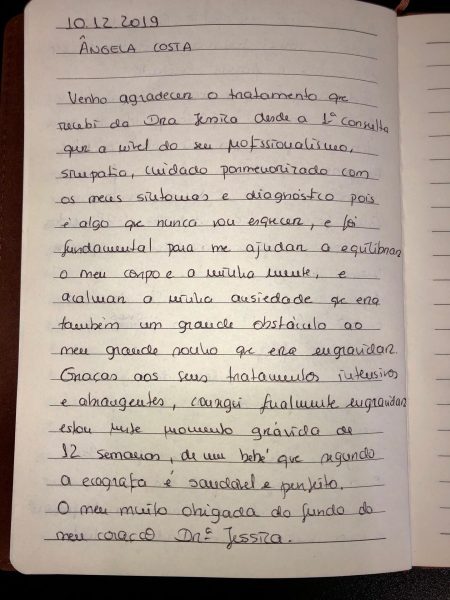 10.12.2019
ÂNGELA COSTA
Venho agradecer o tratamento que
recebi da Dra Jessica desde a 1ª consulta
quer a nível do seu profissionalismo,
simpatia, cuidado pormenorizado com
os meus sintomas e diagnóstico pois
é algo que nunca vou esquecer, e foi
fundamental para me ajudar a equilibrar
o meu corpo e a minha mente, e
acalmar a minha ansiedade que era
também um grande obstáculo ao
meu grande sonho que era engravidar.
Graças aos seus tratamentos intensivos
e abrangentes, consegui finalmente engravidar
estou neste momento grávida de
12 semanas, de um bebé que segundo
a ecografia é saudável e perfeito.
O meu muito obrigada do fundo do
meu coração Drª Jessica.